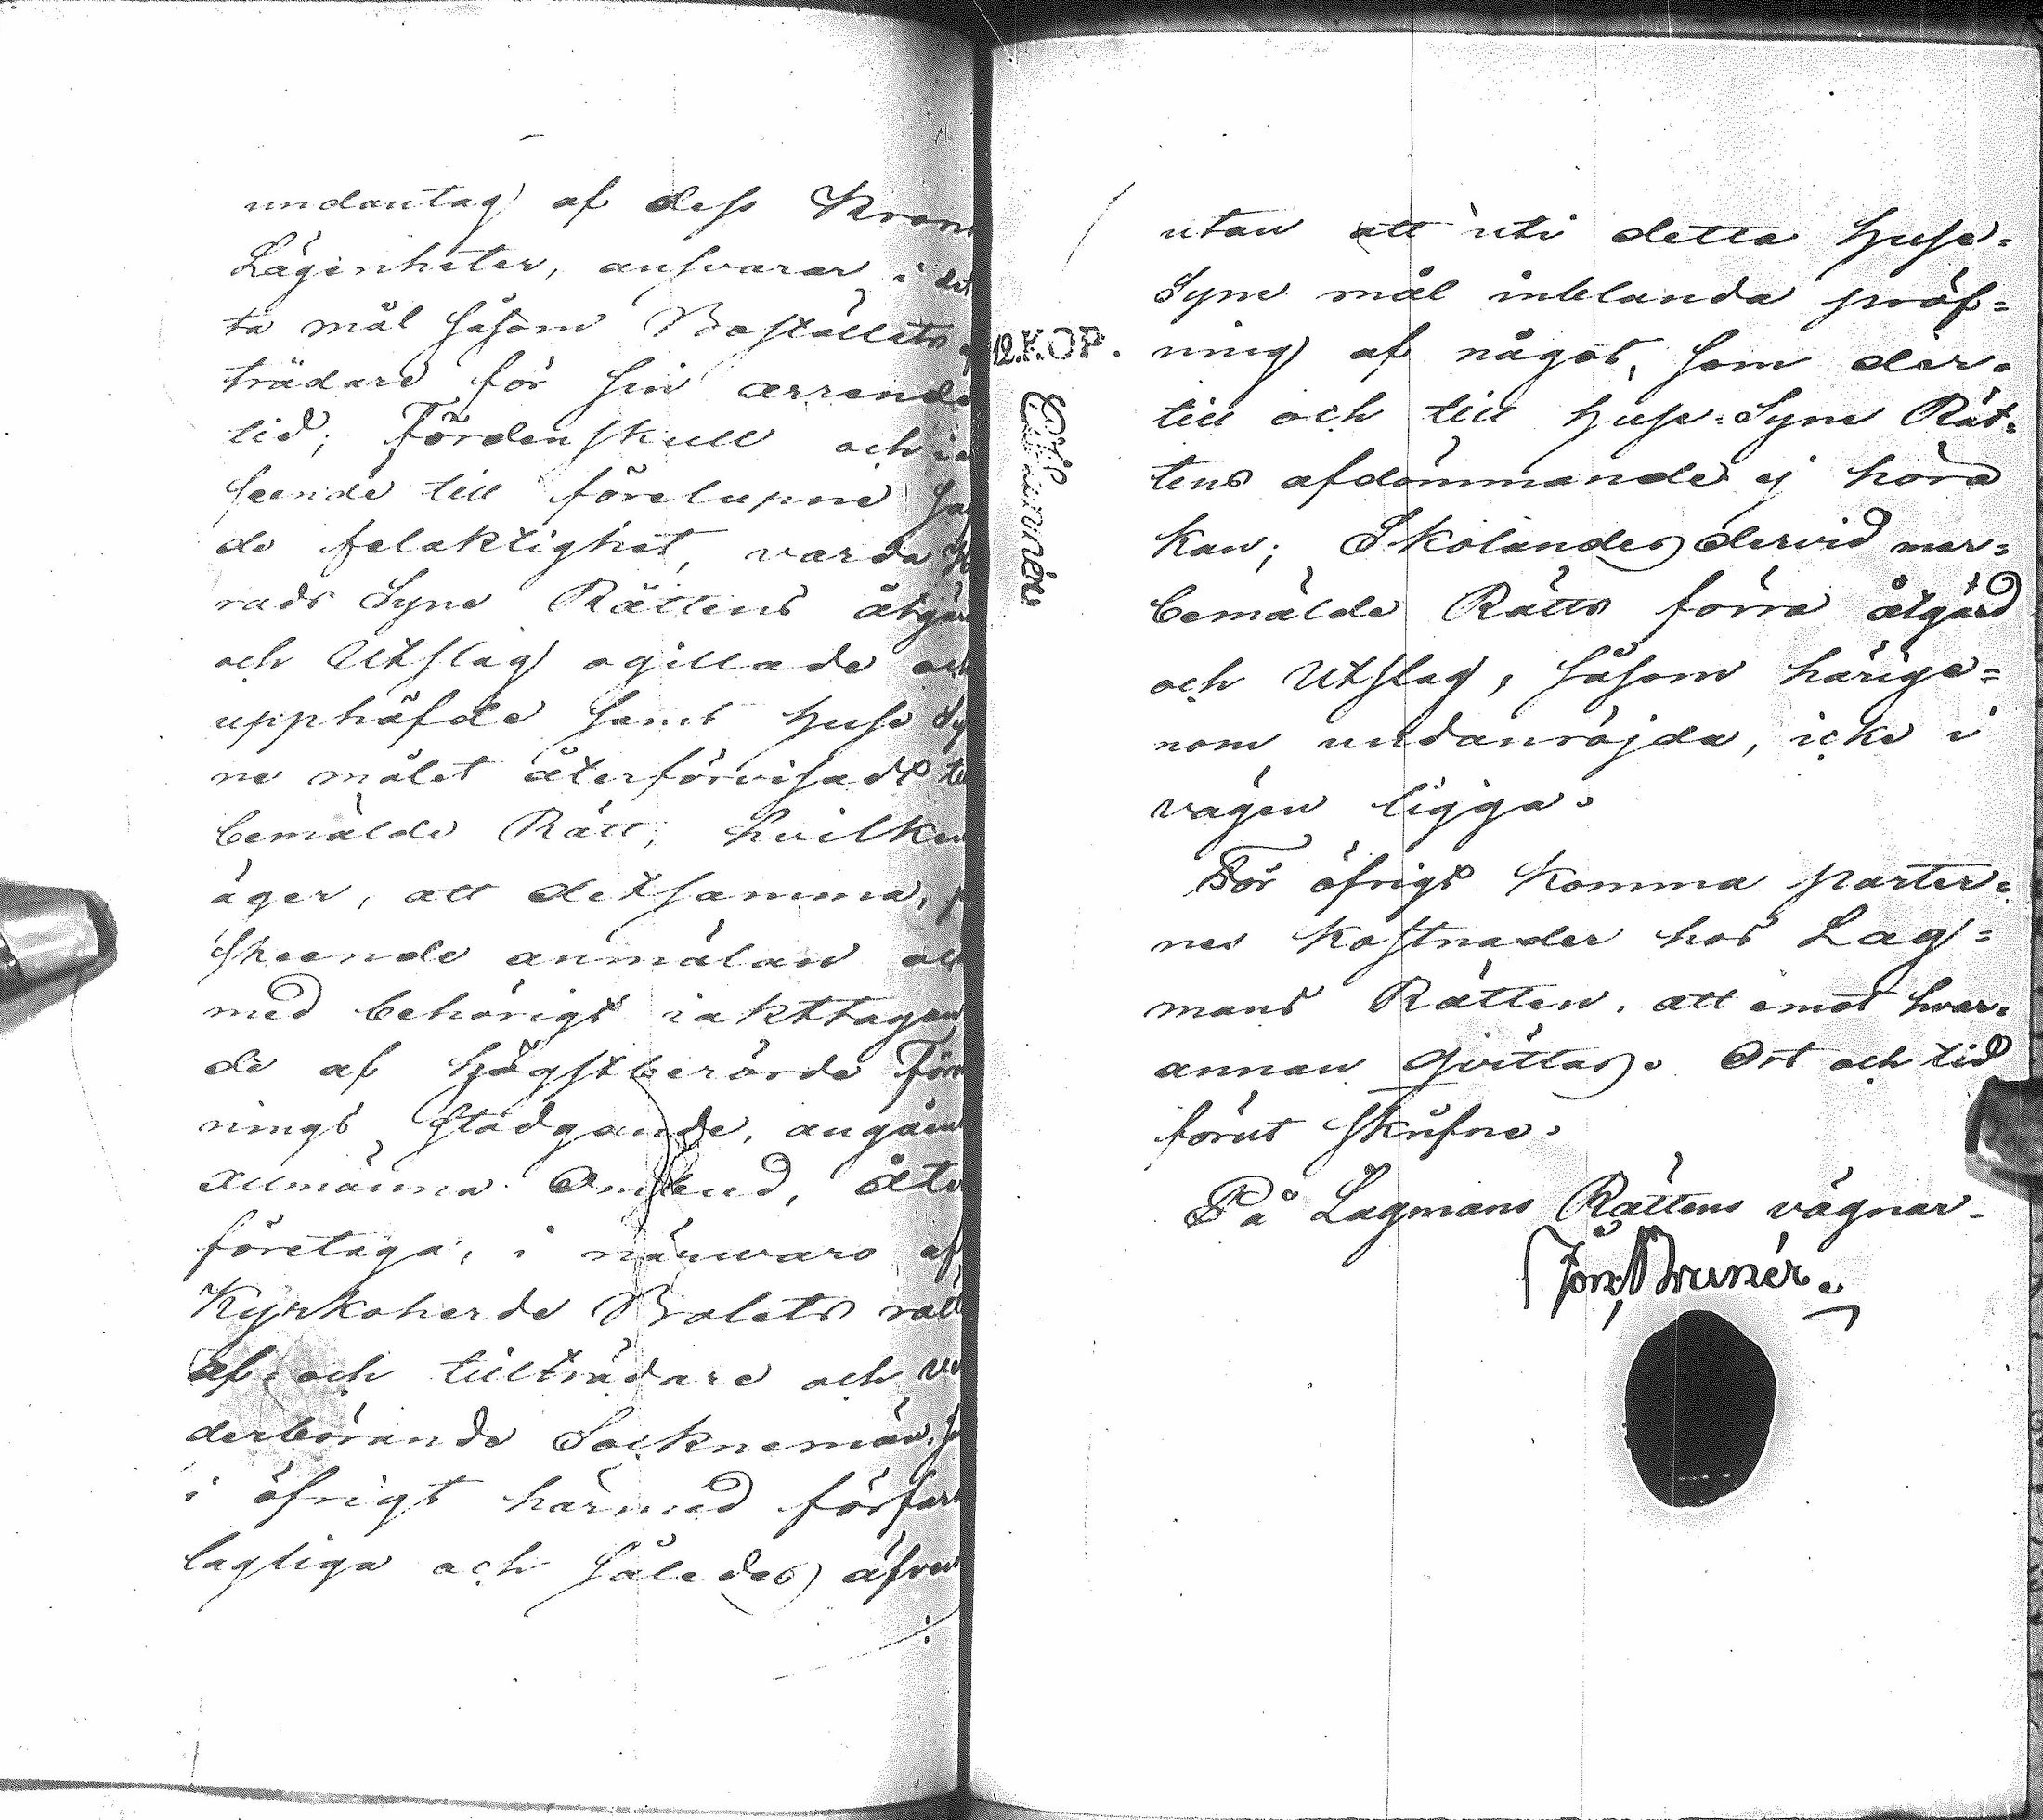 undantag af dess Kron
Lägenheter, ansvarar i det
ta mål såsom Boställets
trädare för sin arrende
tid; Fördenskull och i an
seende till förelupne
de felaktighet, varda H
rads Syne Rättens åtgärd
och Utslag ogillade och
upphäfde samt Huse Sy
ne målet återförvisadt till
bemälde Rätt, hvilken
äger, att detsamma, p
skeende anmälan och
med behörigt iakttagan
de af högstberörde Förord
nings stadgande, angående
allmänna Ombud, åter
företaga, i närwaro af
Kyrkoherde Bolets rätt
af- och tillträdare och ve
derbörande Socknemän,
i öfrigt härmed förfara
lagliga och således äfven
utan att uti detta Huse-
Syne mål inblanda pröf-
ning af något, som der-
till och till Huse-Syne Rät-
tens afdömmande ej höra
kan; Skolandes dervid mer-
bemälde Rätts förra åtgärd
och Utslag, såsom härige-
nom undanröjda, icke i
vägen ligga.
För öfrigt komma parter-
nes kostnader hos Lag-
mans Rätten, att emot hvar-
annan qvittas. Ort och tid
förut skrifne.
På Lagmans Rättens vägnar.
12. K. OP.